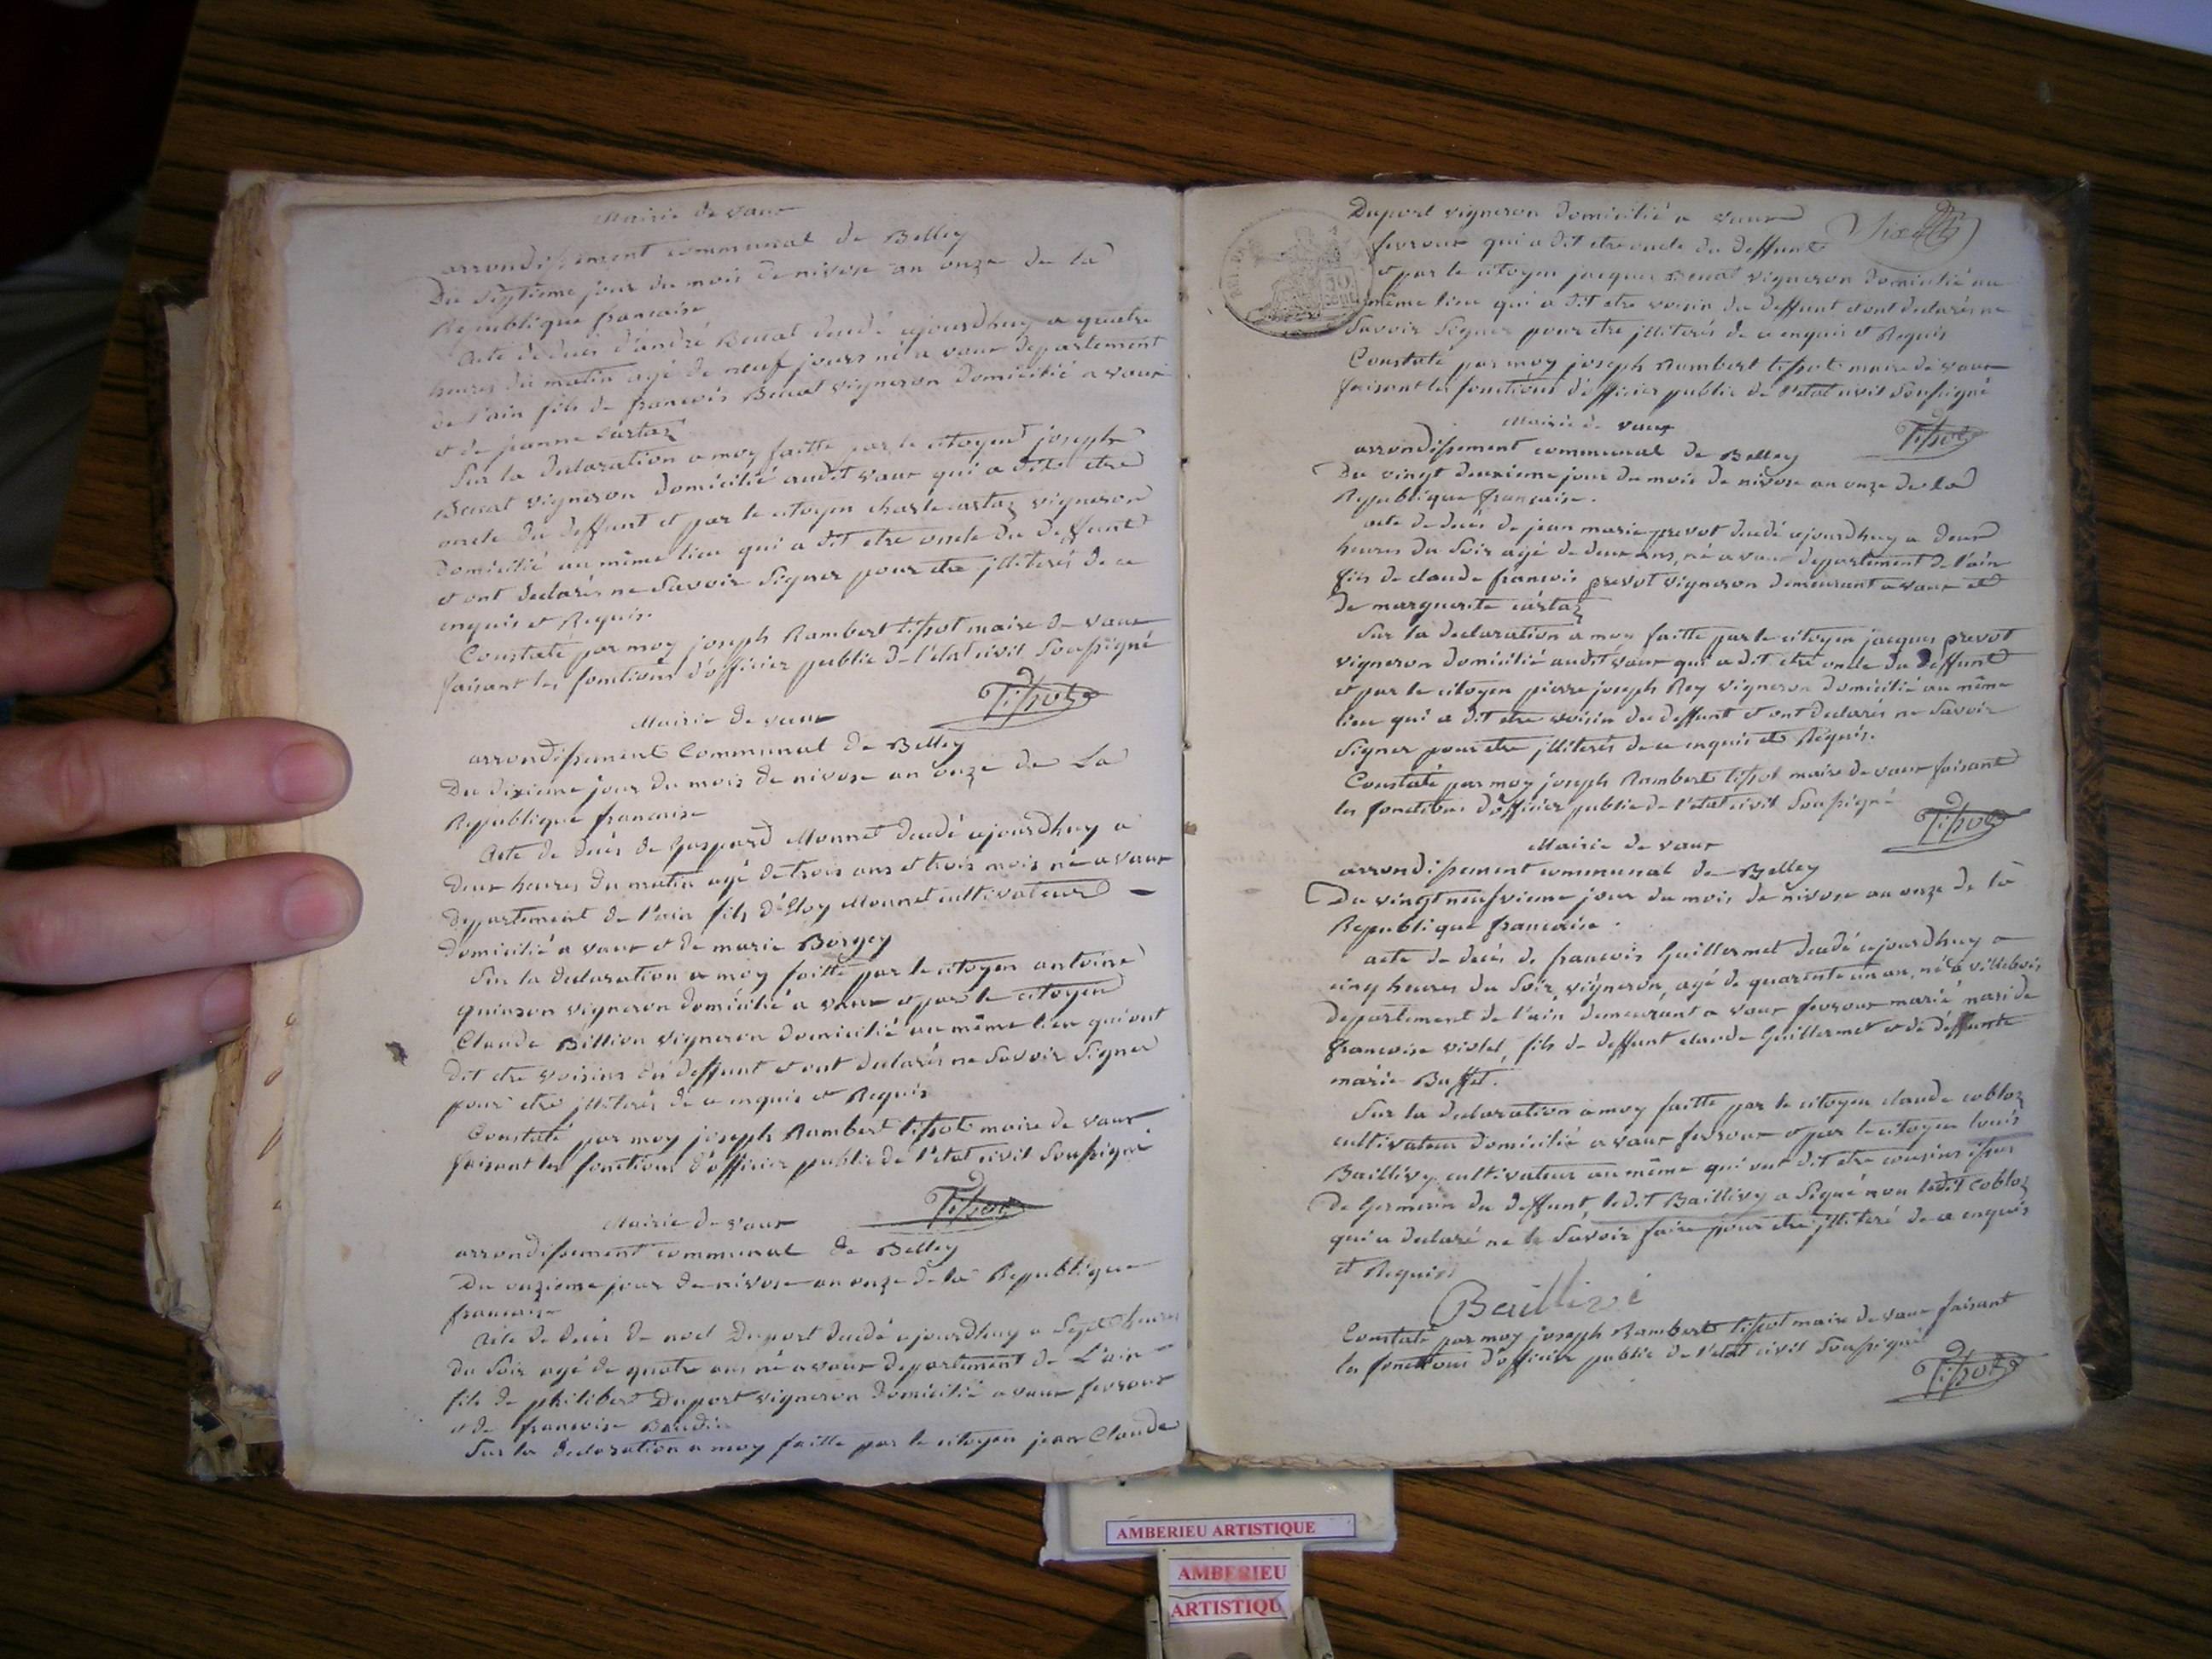 Mairie de vaux
arrondissement communal de Belley
Du Septieme jour du mois de nivose an onze de la
Republique francaise
Acte de decés d'andré Benat decedé ajourdhuy a quatre
heures du matin agé de neuf jours né a vaux departement
de l'ain fils de francois Benat vigneron domicilié a vaux
et de jeanne Cartaz
Sur la declaration a moy faitte par le citoyen joseph
Benat vigneron domicilié audit vaux qui a dit etre
oncle du deffunt et par le citoyen charle cartaz vigneron
domicilié au même lieu qui a dit etre oncle du deffunt
et ont declarés ne Savoir Signer pour etre jlliterés de ce
enquis et Requis.
Constaté par moy joseph Rambert tissot maire de vaux
faisant les fonctions d'officier public de l'etat civil Soussigné
Tissot
Mairie de vaux
arrondissement Communal de Belley
Du dixieme jour du mois de nivose an onze de La
Republique francaise
Acte de decés de Gaspard Monnet decedé ajourdhuy a
deux heures du matin agé de trois ans et trois mois né a vaux
departement de l'ain fils d'Eloy Monnet cultivateur -
domicilié a vaux et de marie Borgey
Sur la declaration a moy faitte par le citoyen antoine
quinson vigneron domicilié a vaux et par le citoyen
Claude Billion vigneron domicilié au même lieu qui ont
dit etre voisins du deffunt et ont declarés ne Savoir Signer
pour etre jlliterés de ce enquis et Requis
Constaté par moy joseph Rambert tissot maire de vaux
faisant les fonctions d'officier public de l'etat civil Soussigné
Tissot
Mairie de vaux
arrondissement communal de Belley
Du onzieme jour de nivose an onze de la Republique
francaise
Acte de decés de noel Duport decedé ajourdhuy a Sept heures
du Soir agé de quatre ans né a vaux departement de L'ain
fils de philibert Duport vigneron domicilié a vaux fevroux
et de francoise Baudin
Sur la declaration a moy faitte par le citoyen jean Claude
Six
Duport vigneron domicilié a vaux
fevroux qui a dit etre oncle du deffunt
et par le citoyen jacques Benat vigneron domicilié au
même lieu qui a dit etre voisin du deffunt et ont declarés ne
Savoir Signer pour etre jlliterés de ce enquis et Requis
Constaté par moy joseph Rambert tissot maire de vaux
faisant les fonctions d'officier public de l'etat civil Soussigné
Tissot
Mairie de vaux
arrondissement communal de Belley
Du vingt deuxieme jour du mois de nivose an onze de la
Republique francaise.
acte de decés de jean marie prevot decedé ajourdhuy a deux
heures du Soir agé de deux ans, né a vaux departement de l'ain
fils de claude francois prevot vigneron demeurant a vaux et
de marguerite cartaz
Sur la declaration a moy faitte par le citoyen jacques prevot
vigneron domicilié audit vaux qui a dit etre oncle du deffunt
et par le citoyen pierre joseph Rey vigneron domicilié au même
lieu qui a dit etre voisin du deffunt et ont declarés ne Savoir
Signer pour etre jlliterés de ce enquis et Requis.
Constaté par moy joseph Rambert tissot maire de vaux faisant
les fonctions d'officier public de l'etat civil Soussigné
Tissot
Mairie de vaux
arrondissement communal de Belley
Du vingt neufvieme jour du mois de nivose an onze de la
Republique francaise.
acte de decés de francois Guillermet decedé ajourdhuy a
cinq heures du Soir, vigneron, agé de quarente un an, né a villebois
departement de l'ain demeurant a vaux fevroux marié mari de
francoise violet, fils de deffunt claude Guillermet et de deffunte
marie Buffet.
Sur la declaration a moy faitte par le citoyen claude cobloz
cultivateur domicilié a vaux fevroux et par le citoyen louis
Baillivy cultivateur au même qui ont dit etre cousins issus
de Germain du deffunt, ledit Baillivy a Signé non ledit cobloz
qui a declaré ne le Savoir faire pour etre jlliteré de ce enquis
et Requis
Baillivi
Constaté par moy joseph Rambert tissot maire de vaux faisant
les fonctions d'officier public de l'etat civil Soussigné
Tissot
AMBERIEU ARTISTIQUE
AMBERIEU
ARTISTIQU